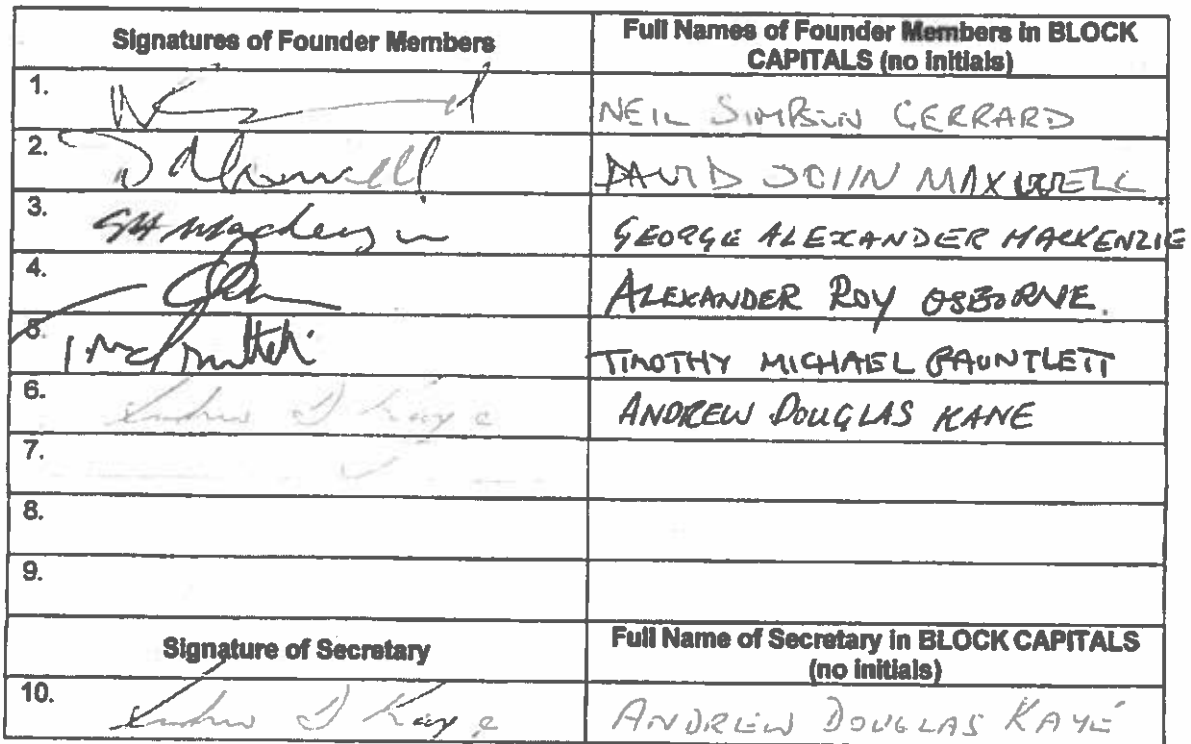 Signatures of Founder Members
Full Names of Founder Members in BLOCK
CAPITALS (no initials)
1.
NEIL SIMPSON GERRARD
2.
DAVID JOHN MAXWELL
3.
GA Mackenzie
GEORGE ALEXANDER MACKENZIE
4.
ALEXANDER ROY OSBORNE.
5.
TIMOTHY MICHAEL GAUNTLETT
6.
Andrew D Kaye
ANDREW DOUGLAS KANE
7.
8.
9.
Signature of Secretary
Full Name of Secretary in BLOCK CAPITALS
(no initials)
10.
Andrew D Kaye
ANDREW DOUGLAS KAYE